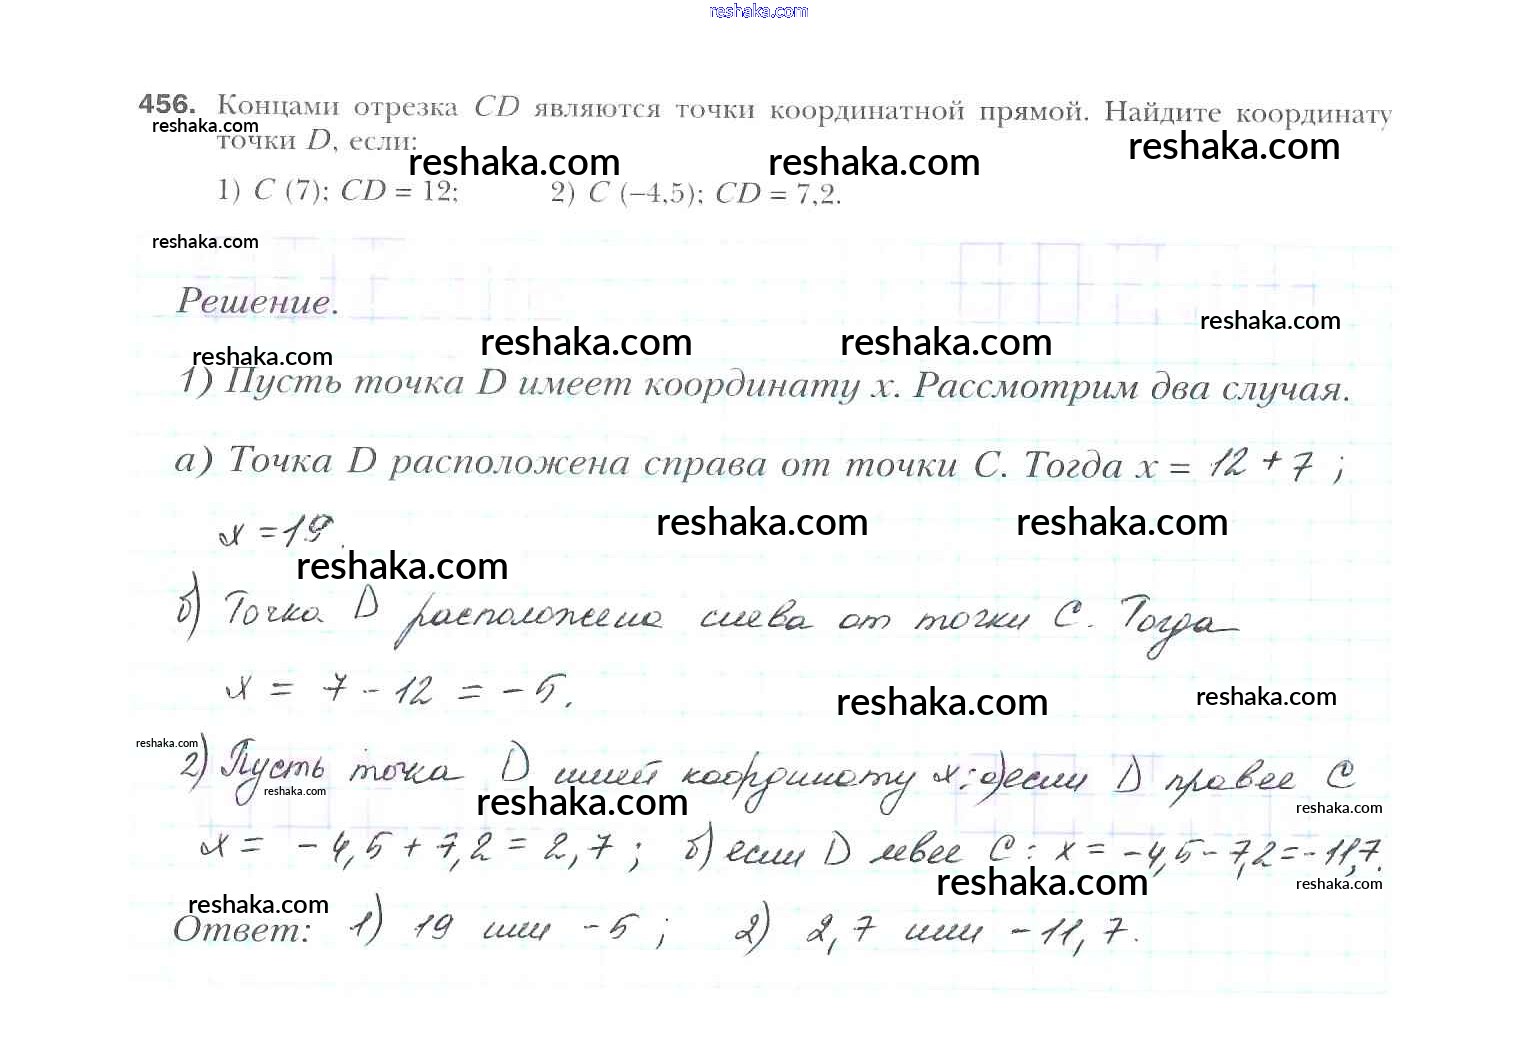 reshaka.com
456. Концами отрезка CD являются точки координатной прямой. Найдите координату
reshaka.com
точки D, если:
reshaka.com reshaka.com reshaka.com
1) C (7); CD = 12; 2) C (–4,5); CD = 7,2.
reshaka.com
Решение.
reshaka.com
reshaka.com reshaka.com reshaka.com
1) Пусть точка D имеет координату x. Рассмотрим два случая.
а) Точка D расположена справа от точки C. Тогда x = 12 + 7 ;
x = 19.
reshaka.com reshaka.com
reshaka.com
б) Точка D расположена слева от точки C. Тогда
x = 7 - 12 = - 5.
reshaka.com reshaka.com
reshaka.com
2) Пусть точка D имеет координату x: а) если D правее C
reshaka.com reshaka.com reshaka.com
x = - 4,5 + 7,2 = 2,7 ; б) если D левее C : x = - 4,5 - 7,2 = - 11,7.
reshaka.com reshaka.com
reshaka.com
Ответ: 1) 19 или - 5 ; 2) 2,7 или - 11,7.